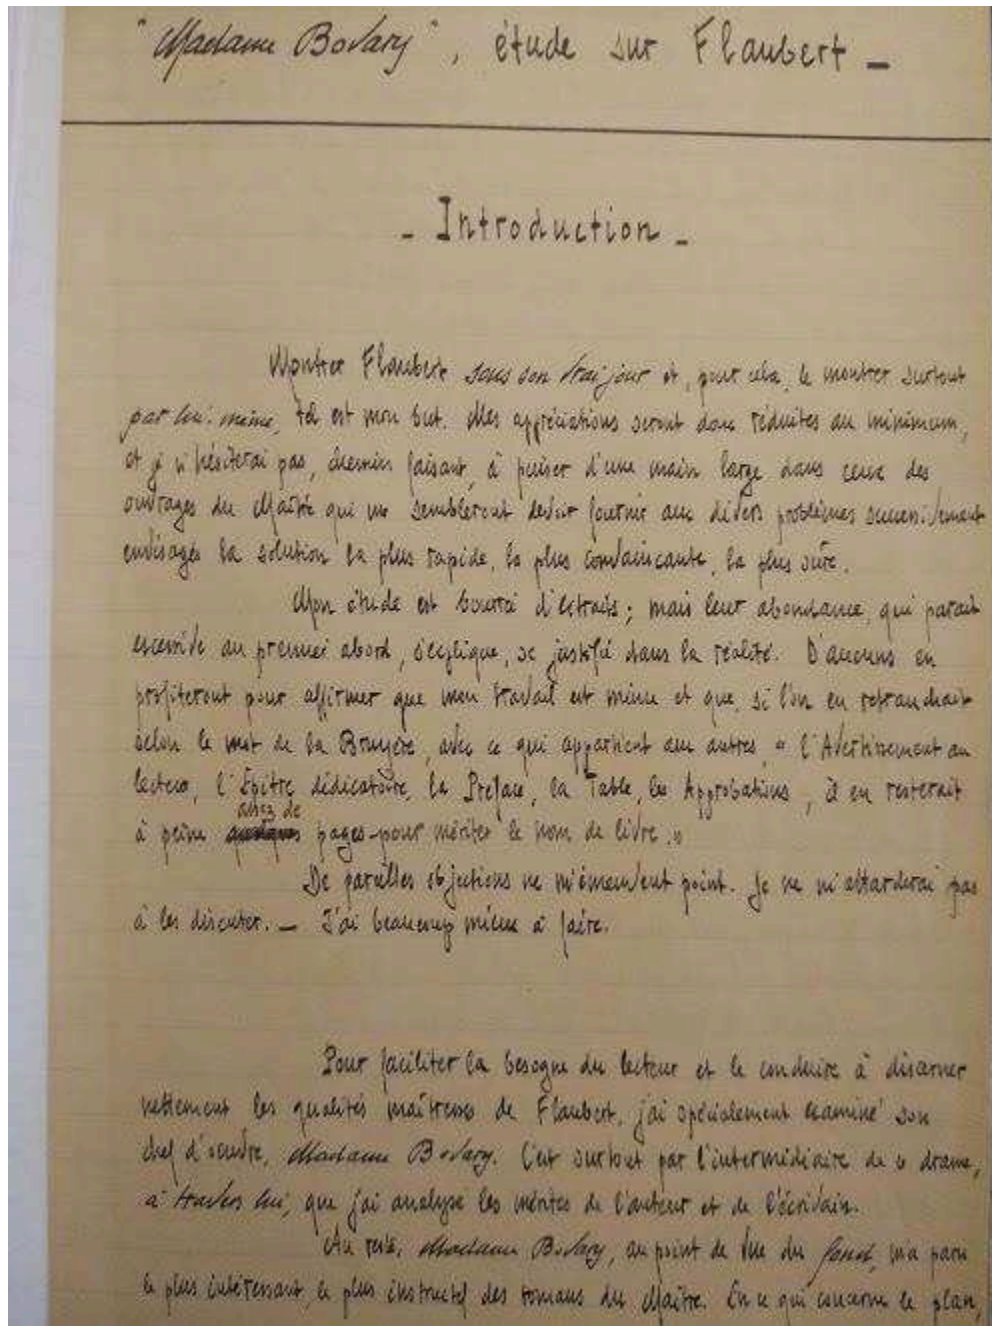 "Madame Bovary", étude sur Flaubert _
- Introduction -
Montrer Flaubert sous son vrai jour et, pour cela, le montrer surtout
par lui-même, tel est mon but. Mes appréciations seront donc réduites au minimum,
et je n'hésiterai pas, chemin faisant, à puiser d'une main large dans ceux des
ouvrages du Maître qui me sembleront devoir fournir aux divers problèmes successivement
envisagés la solution la plus rapide, la plus convaincante, la plus sûre.
Mon étude est bourré d'extraits ; mais leur abondance, qui parait
excessive au premier abord, s'explique, se justifie dans la réalité. D'aucuns en
profiteront pour affirmer que mon travail est mince et que, si l'on en retranchait
selon le mot de la Bruyère, avec ce qui appartient aux autres, « l'Avertissement au
lecteur, l'Epitre dédicatoire, la Préface, la Table, les Approbations, il en resterait
assez de
à peine quelques pages pour mériter le nom de livre. »
De pareilles objections ne m'émeuvent point. Je ne m'attarderai pas
à les discuter. _ J'ai beaucoup mieux à faire.
Pour faciliter la besogne du lecteur et le conduire à discerner
nettement les qualités maîtresses de Flaubert, j'ai spécialement examiné son
chef d'oeuvre, Madame Bovary. C'est surtout par l'intermédiaire de ce drame,
à travers lui, que j'ai analysé les mérites de l'auteur et de l'écrivain.
Au reste, Madame Bovary, au point de vue du fond, m'a paru
le plus intéressant, le plus instructif des romans du Maître. En ce qui concerne le plan,